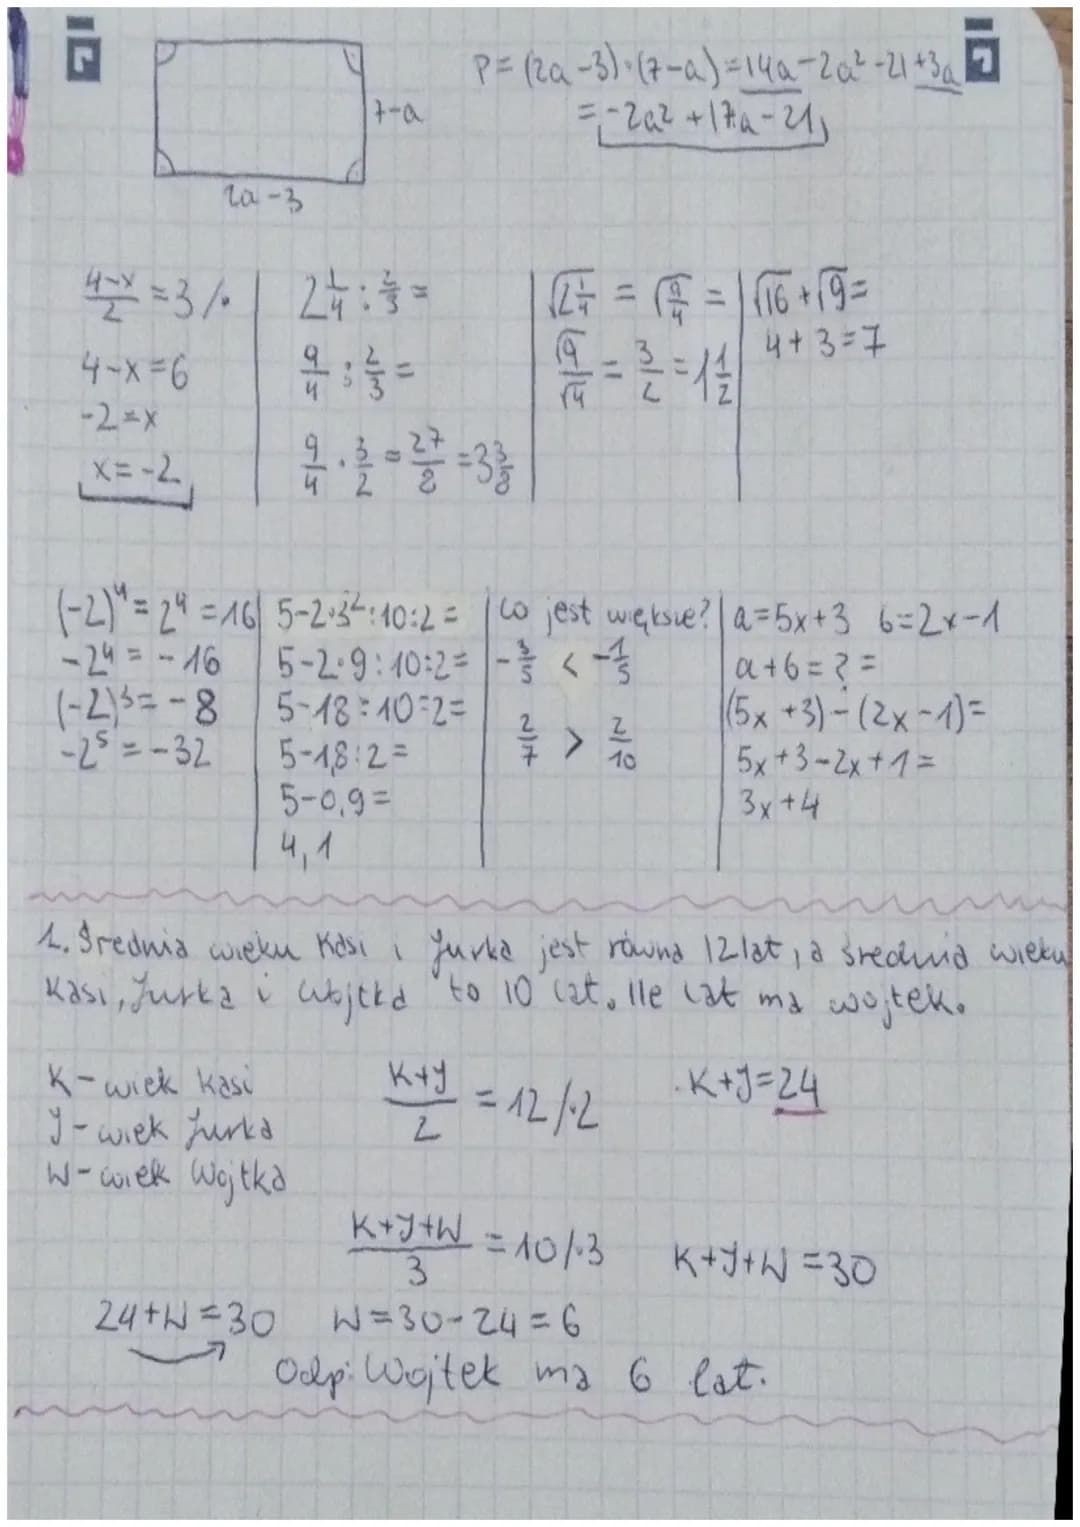 P=(2a-3)·(7-a)=14a-2a²-21+3a
=-2a²+17a-21
7-a
2a-3
4-x/2=3/·
4-x=6
-2=x
x=-2
2 1/4 : 2/3 =
9/4 : 2/3 =
9/4 · 3/2 = 27/8 = 3 3/8
√2 1/4 = √9/4 =
√9/√4 = 3/2 = 1 1/2
√16+√9=
4+3=7
(-2)⁴=2⁴=16
-2⁴=-16
(-2)³=-8
-2⁵=-32
5-2·3²:10:2=
5-2·9:10:2=
5-18:10:2=
5-1,8:2=
5-0,9=
4,1
Co jest większe?
-3/5 < -1/5
2/7 > 2/10
a=5x+3 b=2x-1
a+b=?=
(5x+3)-(2x-1)=
5x+3-2x+1=
3x+4
1. Średnia wieku Kasi i Jurka jest równa 12 lat, a średnia wieku
Kasi, Jurka i Wojtka to 10 lat. Ile lat ma wojtek.
K-wiek Kasi
J-wiek Jurka
W-wiek Wojtka
K+J/2=12/·2
K+J=24
K+J+W/3=10/·3
K+J+W=30
24+W=30 W=30-24=6
Odp: Wojtek ma 6 lat.